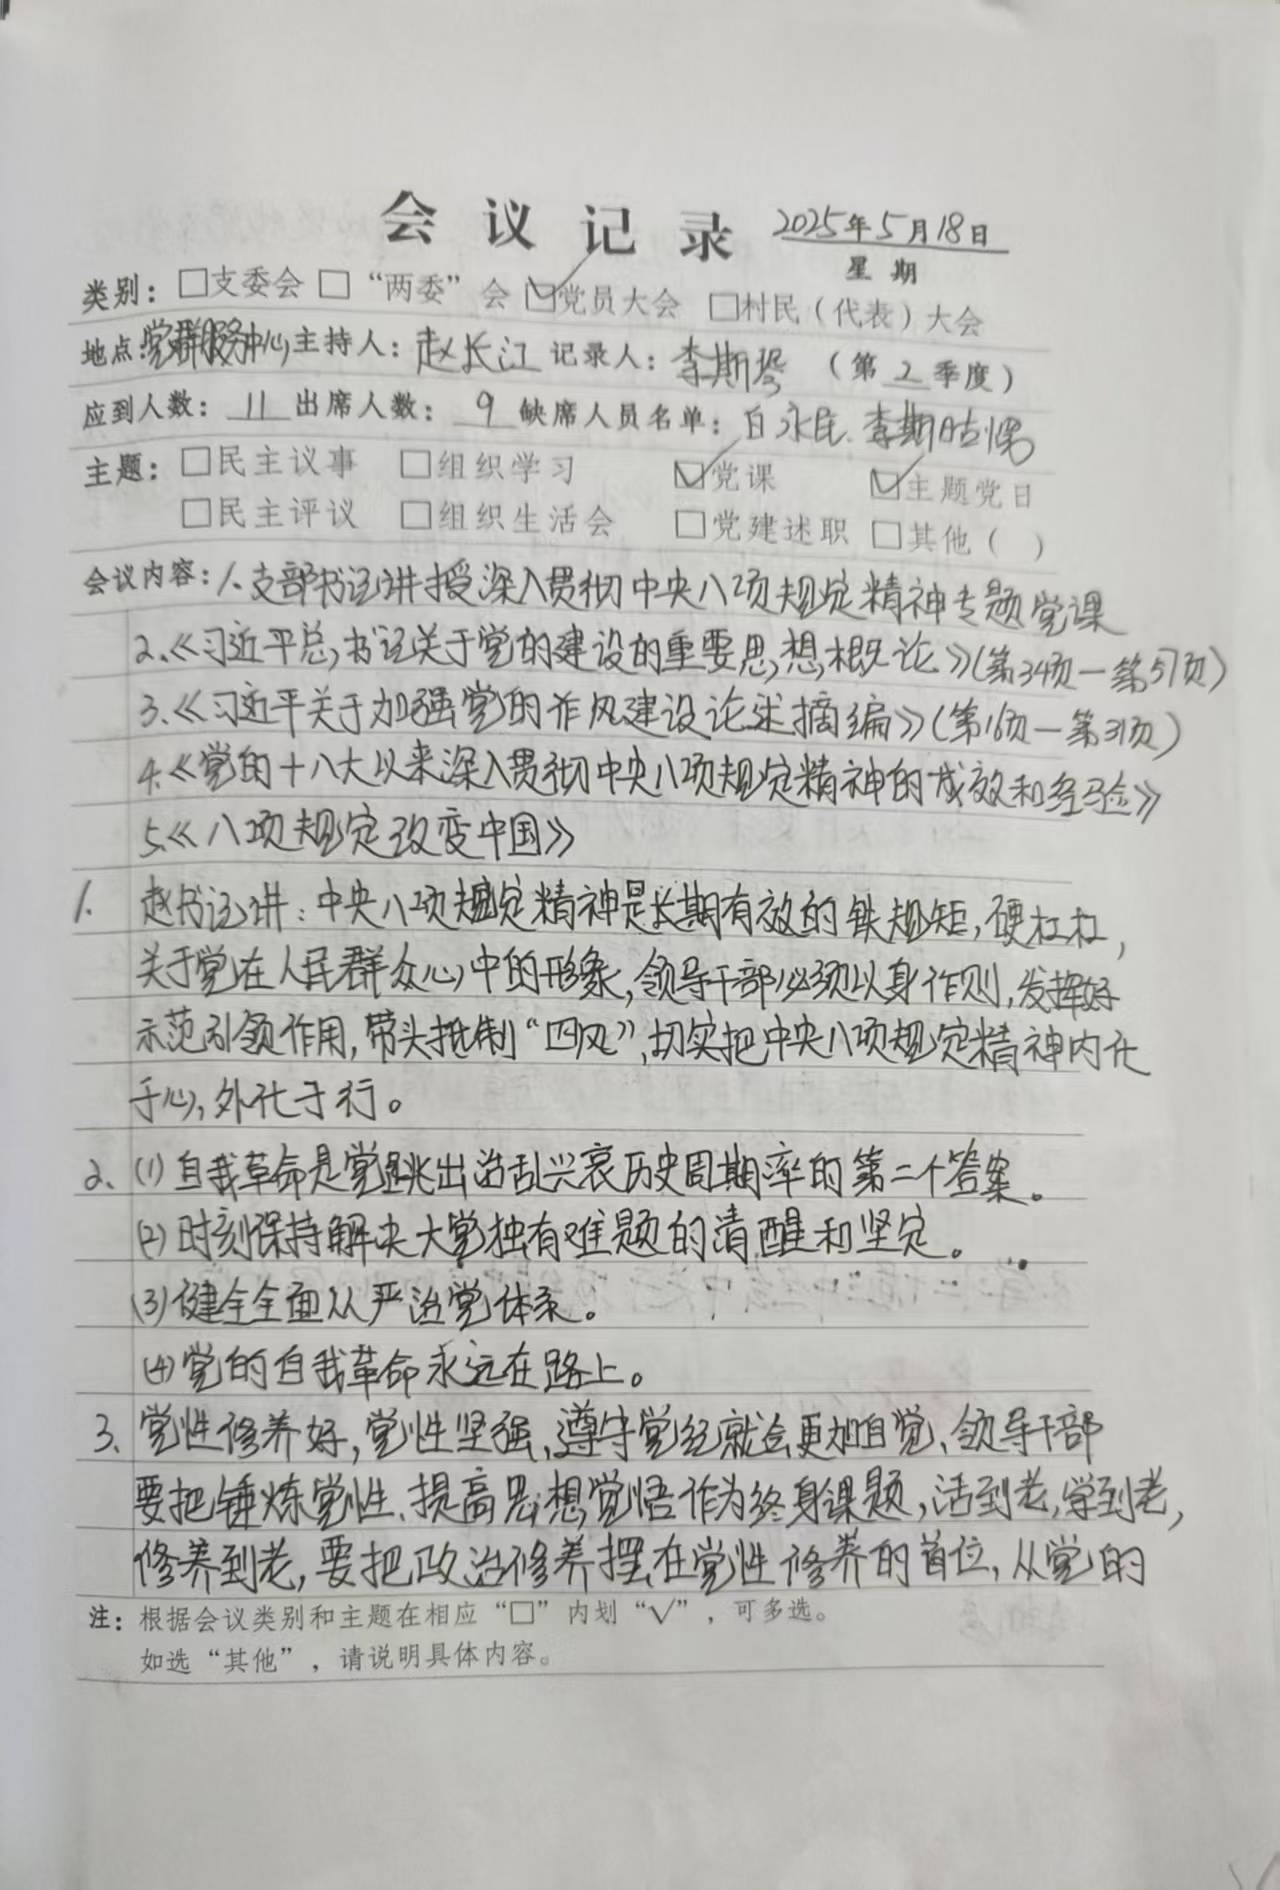 会议记录 2025年5月18日
星期
类别：□支委会 □“两委”会 ☑党员大会 □村民（代表）大会
地点：党群服务中心 主持人：赵长江 记录人：李斯琴 （第2季度）
应到人数：11 出席人数：9 缺席人员名单：白永民、李斯
主题：□民主议事 □组织学习 ☑党课 ☑主题党日
□民主评议 □组织生活会 □党建述职 □其他（ ）
会议内容：1、支部书记讲授深入贯彻中央八项规定精神专题党课
2、《习近平总书记关于党的建设的重要思想概论》（第34页—第57页）
3、《习近平关于加强党的作风建设论述摘编》（第16页—第31页）
4、《党的十八大以来深入贯彻中央八项规定精神的成效和经验》
5、《八项规定改变中国》
1、赵书记讲：中央八项规定精神是长期有效的铁规矩，硬杠杠，
关于党在人民群众心中的形象，领导干部必须以身作则，发挥好
示范引领作用，带头抵制“四风”，切实把中央八项规定精神内化
于心，外化于行。
2、(1)自我革命是党跳出治乱兴衰历史周期率的第二个答案。
(2)时刻保持解决大党独有难题的清醒和坚定。
(3)健全全面从严治党体系。
(4)党的自我革命永远在路上。
3、党性修养好，党性坚强，遵守党纪就会更加自觉、领导干部
要把锤炼党性、提高思想觉悟作为终身课题，活到老，学到老，
修养到老，要把政治修养摆在党性修养的首位，从党的
注：根据会议类别和主题在相应“□”内划“√”，可多选。
如选“其他”，请说明具体内容。